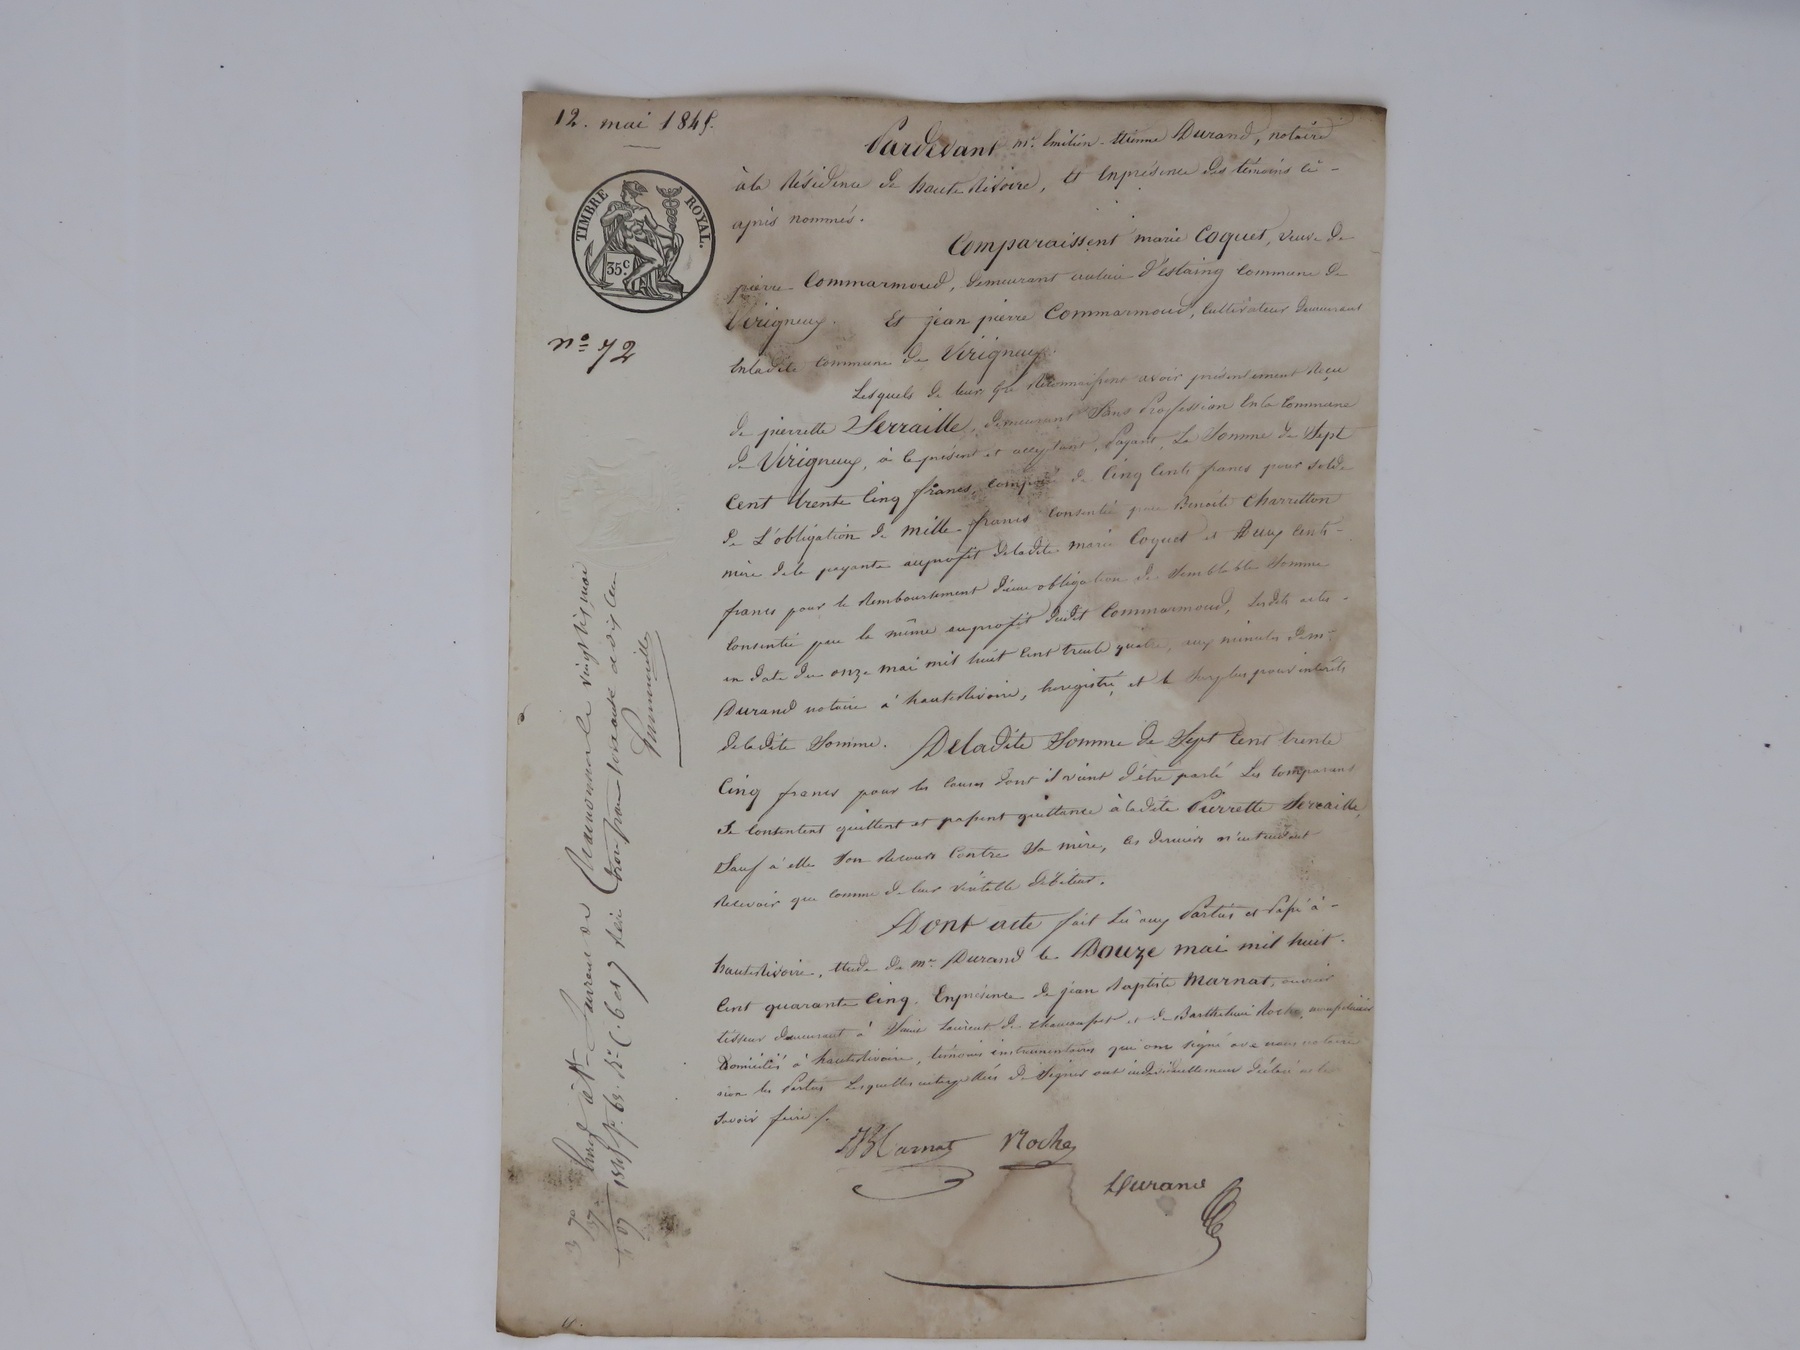 12. mai 1845.
Pardevant Me. Emilien-Etienne Durand, notaire
à la Résidence de hauterivoire, Et Enprésence des témoins ci-
après nommés.
TIMBRE ROYAL.
35c.
Comparaissent marie Coquet, veuve de
pierre Commarmond, demeurant au lieu d'Estaing Commune de
Virigneux. Et jean pierre Commarmond, Cultivateur demeurant
Enladite Commune de Virigneux.
no. 72
Lesquels de leur gré Reconnaissent avoir présentement Reçu
de pierrette Serraille, demeurant Sans Profession Enla Commune
de Virigneux, à ce présente et acceptant, Payant, La Somme de Sept
Cent trente Cinq francs, composée de Cinq Cents francs pour solde
de L'obligation de mille francs consentie par Benoite Charretton
mère dela payante auprofit deladite marie Coquet et Deux Cents-
francs pour le Remboursement d'une obligation de Semblable Somme
Consentie par la même auprofit dudit Commarmond, Lesdits actes-
en date du onze mai mil huit Cent trente quatre, aux minutes dem.
Durand notaire à hauterivoire, Enregistré, et le Surplus pour intérêts
deladite Somme. Deladite Somme de Sept Cent trente
Cinq francs pour les Causes dont il vient d'être parlé Les Comparants
Se Contentent quittent et passent quittance à ladite Pierrette Serraille,
Sauf à elle Son Recours Contre Sa mère, les derniers n'entendant
Recevoir que comme de leur véritable débiteur.
Dont acte fait Lu aux Parties et Passé à-
hauterivoire, Etude de me. Durand le Douze mai mil huit-
Cent quarante Cinq. Enprésence de jean Baptiste Marnat, ouvrier
tisseur demeurant à Saint Laurent de Chamousset et de Barthélemi Roche,
Domiciliés à hauterivoire, témoins instrumentaires qui ont signé avec nous notaire
non les Parties Lesquelles interpellées de Signer ont individuellement déclaré ne le
Savoir faire./.
JB Marnat Roche
Durand
Enreg. à St. Laurent de Chamousset le vingt six mai
1845 fo. 63. Ro. C. 6 et 7 Reçu trois francs soixante dix cen.
3 70
37
4 07